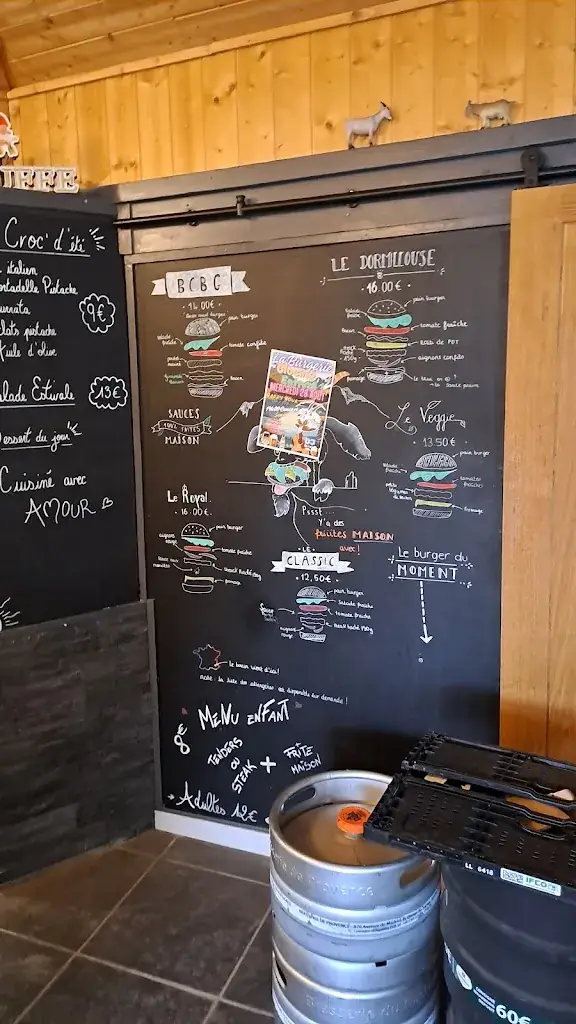 Croc' d'été
italien
Pistache
pistache
d'olive
9€
Estivale
13€
Dessert du jour
Cuisiné avec
AMOUR
BCBC
16.00€
pain burger
tomate confite
bacon
LE DORMILLOUSE
16.00€
pain burger
tomate fraîche
oignons confits
fromage
SAUCES
100% FAITES
MAISON
La Burgerie
MERCREDI 28 AOUT
Le Veggie
13.50€
pain burger
tomates
fromage
Le Royal
16.00€
pain burger
oignons rouges
tomate fraîche
Pssst...
Y'a des
frites MAISON
avec !
LE
CLASSIC
12,50€
pain burger
salade fraîche
tomate fraîche
steak haché 150g
oignons rouges
Le burger du
MOMENT
note : la liste des allergènes est disponible sur demande !
MENU ENFANT
8€
TENDERS
OU
STEAK
+
FRITE
MAISON
→ Adultes 12€
LL 6418
IFCO
60€